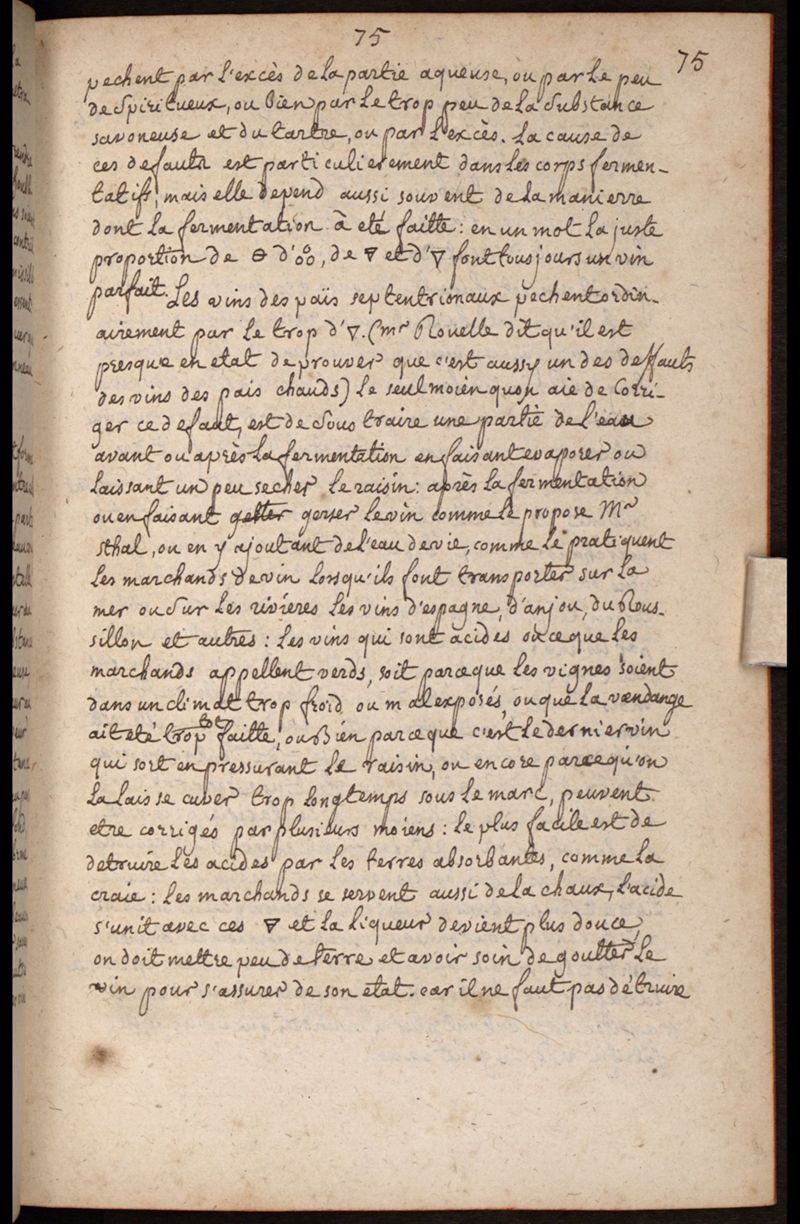 75
75
pechent par l'excès de la partie aqueuse, ou par le peu
de spiritueux, ou bien par le trop peu de la substance
savoneuse et du tartre, ou par l'excès. La cause de
ces defauts est particulierement dans les corps fermen-
tatifs, mais elle depend aussi souvent de la manierre
dont la fermentation à eté faitte: en un mot la juste
proportion de 🜔 d'🜆, de 🜃 et d'🜄 font tousjours un vin
parfait. Les vins des païs septentrionaux pechent ordin-
airement par le trop d'🜄. (mr Rouelle dit qu'il est
presque en etat de prouver que c'est aussy un des deffauts
des vins des pais chauds) le seul moien quon aie de Corri-
ger ce defaut, est de soustraire une partie de l'eau
avant ou après la fermentation en faisant evaporer ou
laissant un peu secher le raisin: après la fermentation
ou en faisant geller gerser le vin comme le propose Mr
sthal, ou en y ajoutant de l'eau de vie, comme le pratiquent
les marchands de vin lorsqu'ils font transporter sur la
mer ou sur les rivieres les vins d'espagne, d'anjou, du Rous-
sillon et autres: les vins qui sont acides ou ce que les
marchands appellent verds, soit parceque les vignes soient
dans un climat trop froid ou mal exposés, ou que la vendange
ait eté trop tot faitte, ou Bien parceque c'est le dernier vin
qui sort en pressurant le raisin, ou encore parcequ'on
la laisse cuver trop longtemps sous le marc, peuvent
etre corrigés par plusieurs moiens: le plus facile est de
detruire les acides par les terres absorbantes, comme la
craie: les marchands se servent aussi de la chaux, l'acide
s'unit avec ces 🜃 et la liqueur devient plus douce,
on doit mettre peu de terre et avoir soin de goutter le
vin pour s'assurer de son état. car il ne faut pas détruire